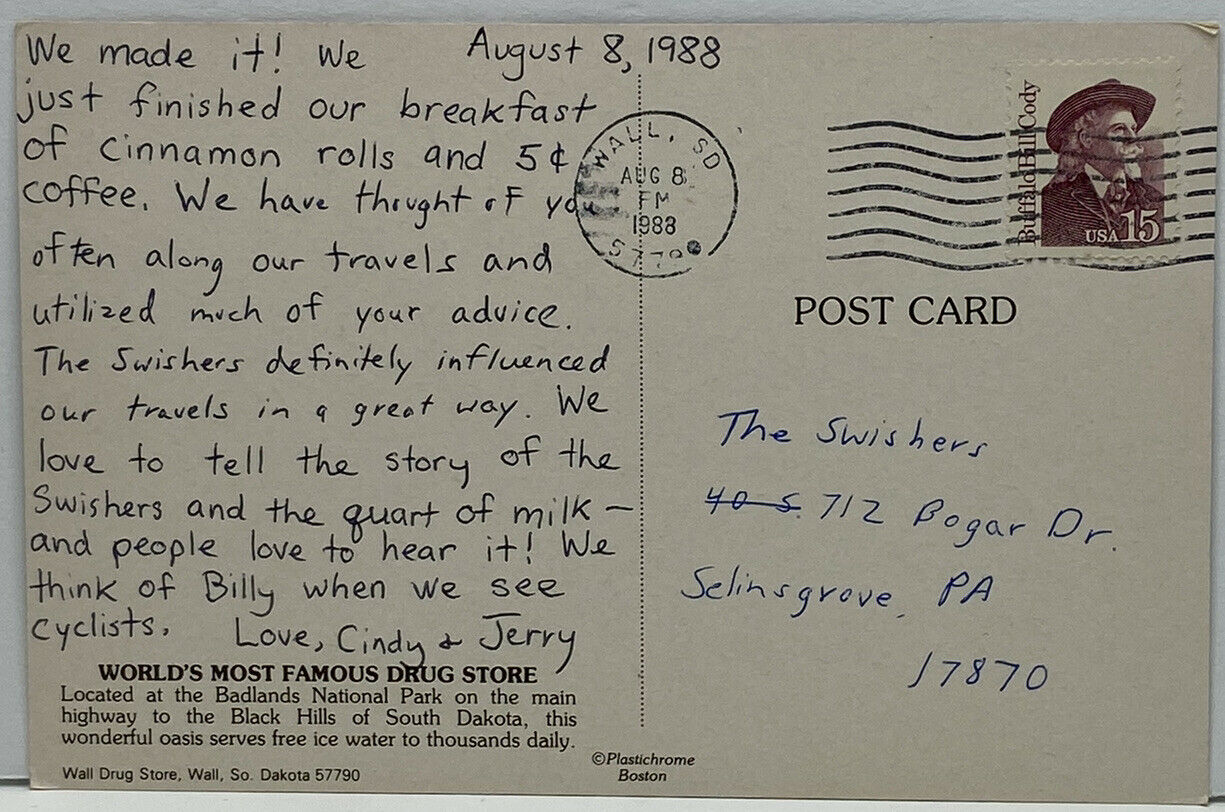 August 8, 1988
We made it! We
just finished our breakfast
of cinnamon rolls and 5¢
coffee. We have thought of yo
often along our travels and
utilized much of your advice.
The Swishers definitely influenced
our travels in a great way. We
love to tell the story of the
Swishers and the quart of milk –
and people love to hear it! We
think of Billy when we see
cyclists. Love, Cindy & Jerry
WORLD'S MOST FAMOUS DRUG STORE
Located at the Badlands National Park on the main
highway to the Black Hills of South Dakota, this
wonderful oasis serves free ice water to thousands daily.
Wall Drug Store, Wall, So. Dakota 57790
©Plastichrome
Boston
WALL, SD
AUG 8
PM
1988
Buffalo Bill Cody
USA 15
POST CARD
The Swishers
40 S. 712 Bogar Dr.
Selinsgrove, PA
17870